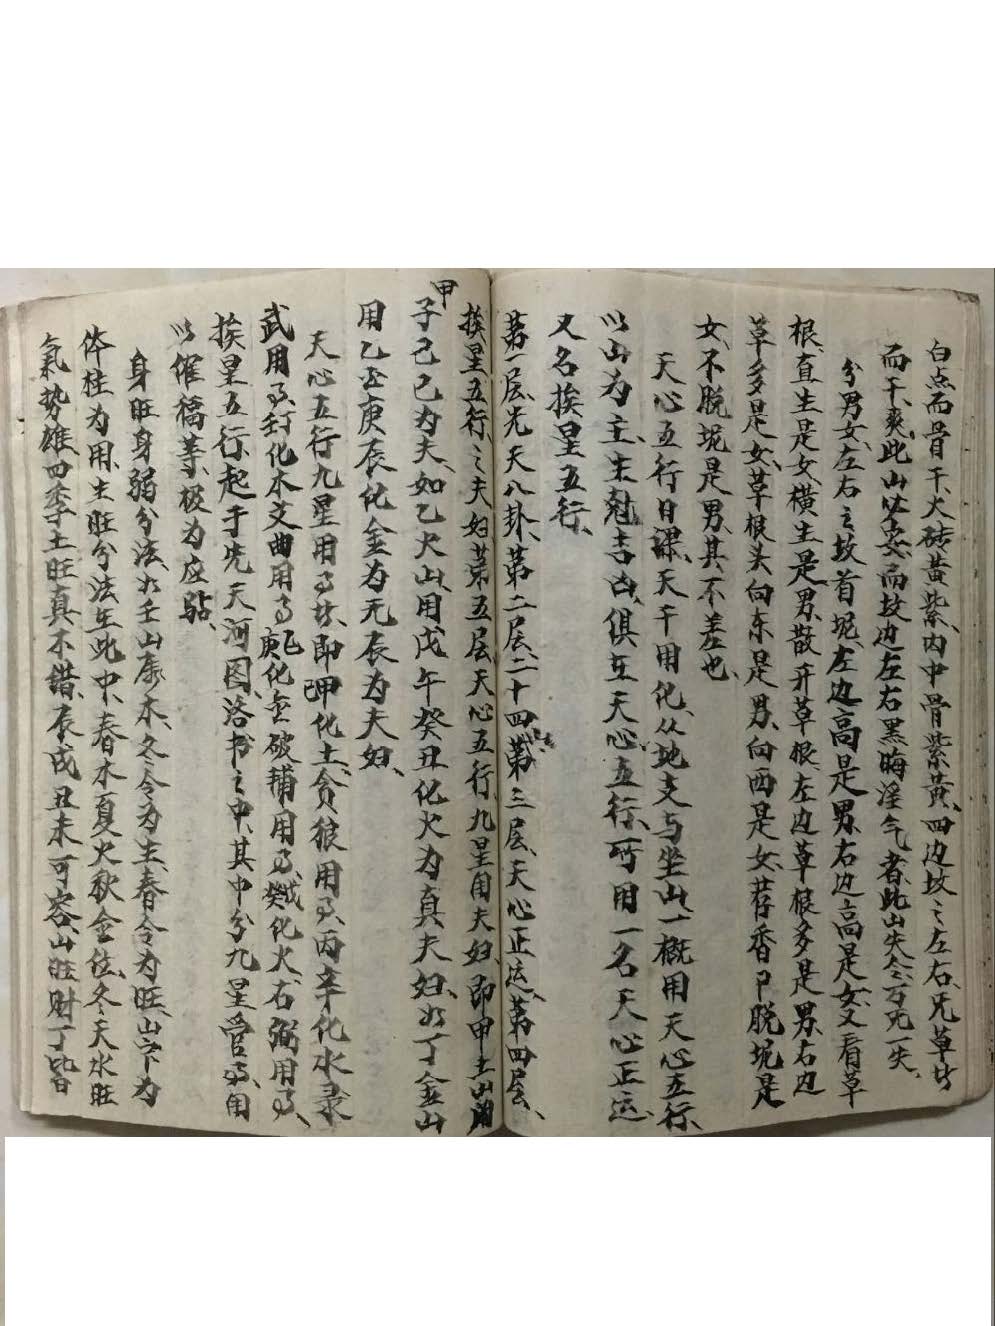 白点而骨干、火砖黄紫、内中骨紫黄、四边坟之左右、见草皆
而干爽、此山必安、而坟边左右黑晦淫气者此山失令万无一失、
分男女、左右之故首坭、左边高是男、右边高是女、又看草
根、直生是女、横生是男、散开草根、左边草根多是男、右边
草多是女、草根头向东是男、向西是女、若香尸脱坭是
女、不脱坭是男、其不差也、
天心五行日课、天干用化、从地支与坐山一概用天心五行、
以山为主、生尅吉凶、俱在天心五行、可用一名天心正运、
又名挨星五行、
第一层、先天八卦、第二层、二十四山、第三层、天心正运、第四层、
挨星五行、之夫妇、第五层、天心五行、九星用夫妇、即甲土山用
甲子己巳为夫、如乙火山、用戊午癸丑化火为真夫妇、如丁金山
用乙丑庚辰化金为元辰为夫妇、
天心五行九星用事、故、即甲己化土、贪狼用事、丙辛化水、录
武用事、化木、文曲用事、乙庚化金、破辅用事、戊癸化火、右弼用事、
挨星五行、起于先天河图、洛书之中、其中分九星管事、用
以催福等、极为应验、
身旺身弱分法、如壬山属木、冬令为生、春令为旺、山家为
体、柱为用、生旺分法在此中、春木夏火秋金位、冬天水旺
氣势雄、四季土旺真不错、辰戌丑未可容、山旺财丁皆